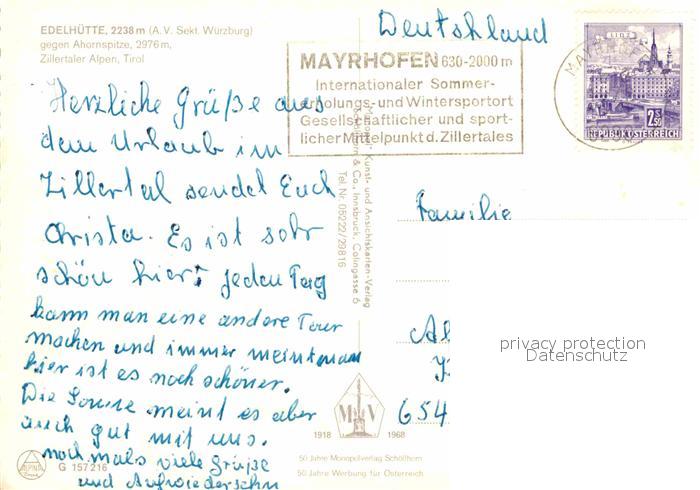 EDELHÜTTE, 2238 m (A. V. Sekt. Würzburg)
gegen Ahornspitze, 2976 m,
Zillertaler Alpen, Tirol
Deutschland
MAYRHOFEN 630-2000 m
Internationaler Sommer-
erholungs- und Wintersportort
Gesellschaftlicher und sport-
licher Mittelpunkt d. Zillertales
LINZ
2.50
REPUBLIK ÖSTERREICH
Herzliche Grüße aus
dem Urlaub im
Zillertal sendet Euch
Christa. Es ist sehr
schön hier; jeden Tag
kann man eine andere Tour
machen und immer meint man
hier ist es noch schöner.
Die Sonne meint es aber
auch gut mit uns.
nochmals viele Grüße
und Aufwiedersehn
Kunst- und Ansichtskarten-Verlag
& Co., Innsbruck, Colingasse 6
Tel. Nr. 05222/29816
Familie
654
privacy protection
Datenschutz
M V
1918 1968
50 Jahre Monopolverlag Schöllhorn
50 Jahre Werbung für Österreich
ALPINA
G 157 216